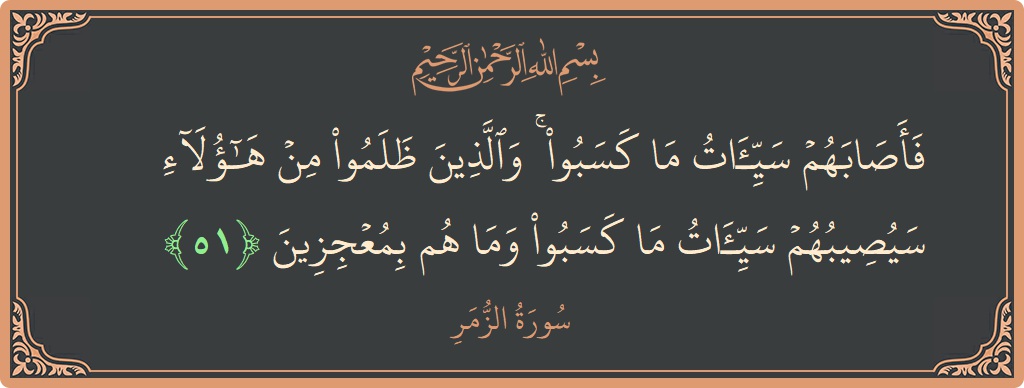 بِسْمِ اللهِ الرَّحْمٰنِ الرَّحِيْمِ
فَأَصَابَهُمْ سَيِّـَٔاتُ مَا كَسَبُوا۟ ۚ وَٱلَّذِينَ ظَلَمُوا۟ مِنْ هَـٰٓؤُلَآءِ
سَيُصِيبُهُمْ سَيِّـَٔاتُ مَا كَسَبُوا۟ وَمَا هُم بِمُعْجِزِينَ ﴿٥١﴾
سُورَةُ الزُّمَرِ